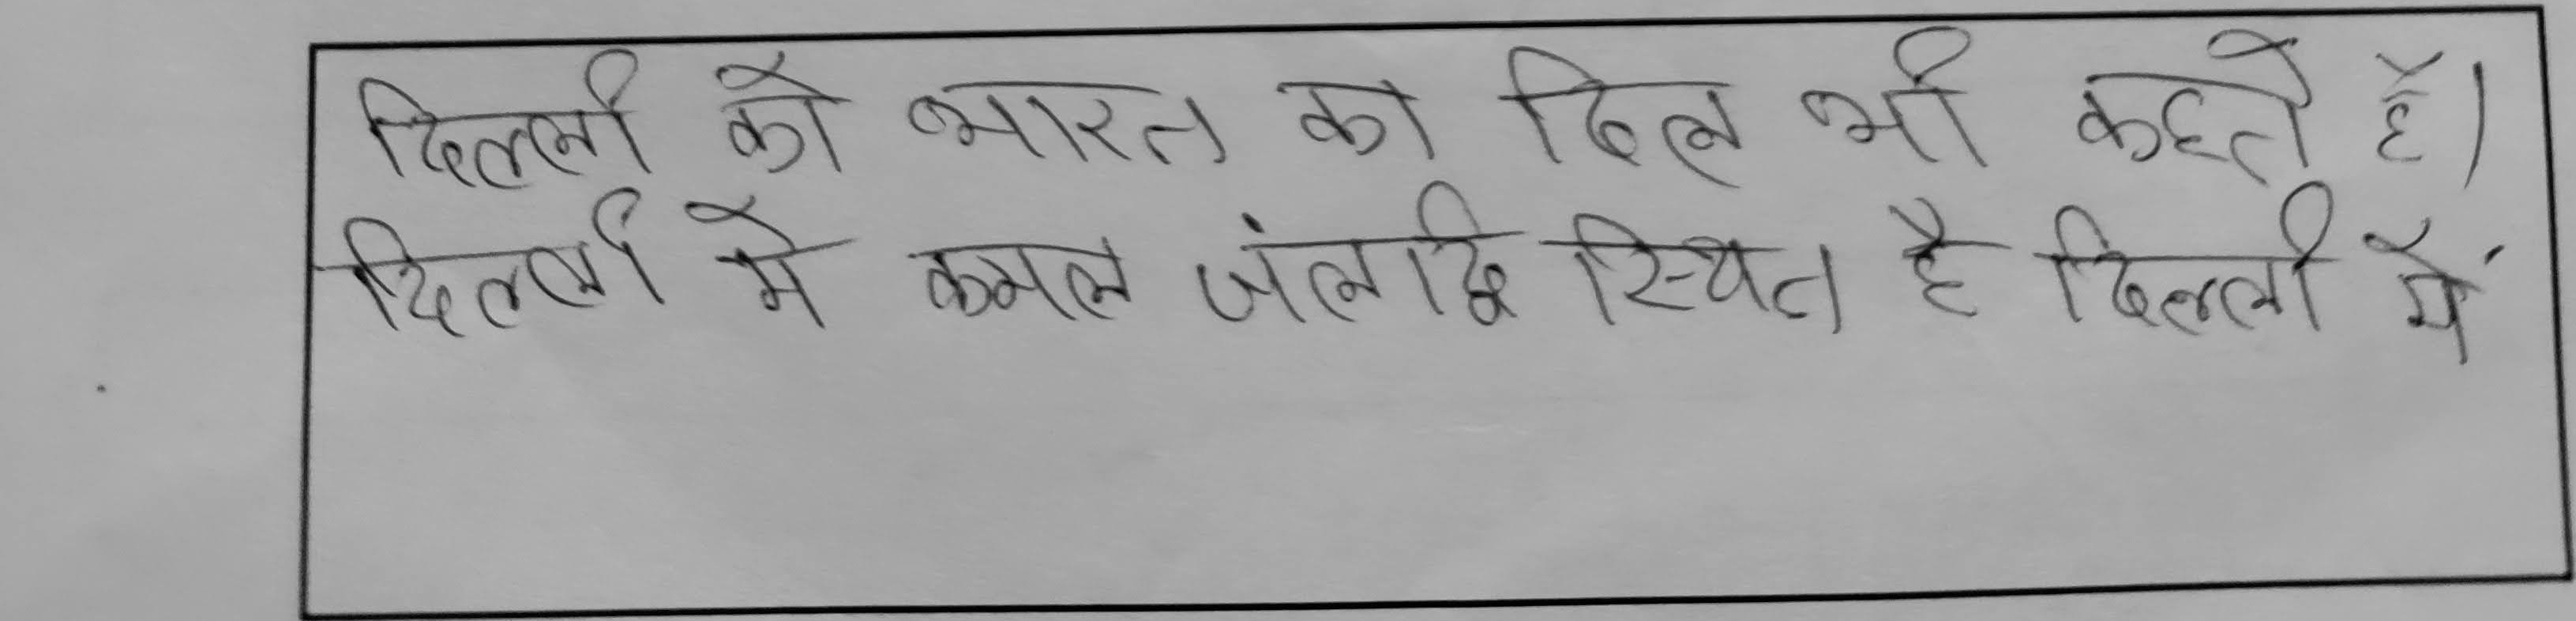 दिल्ली को भारत का दिल भी कहते है।
दिल्ली मे कमल स्थित है दिल्ली में